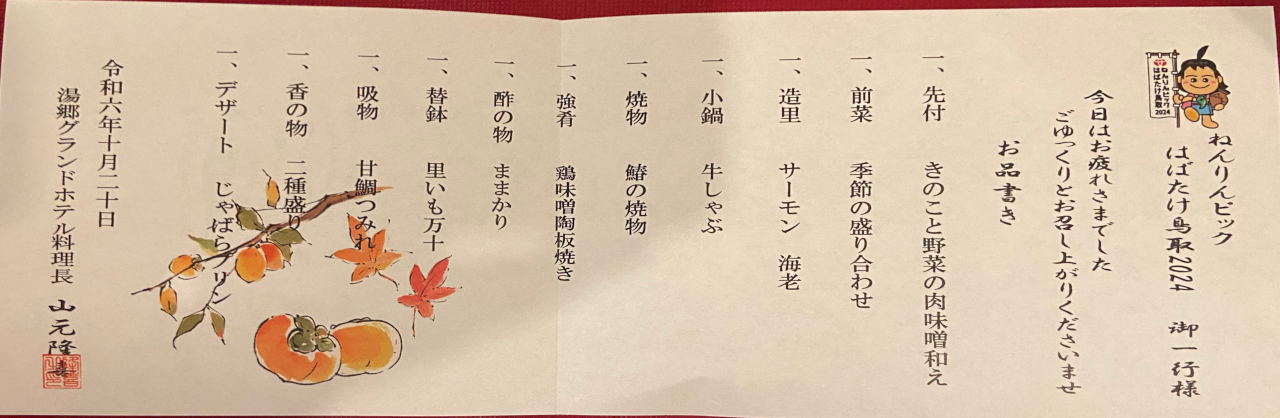 ねんりんピック
はばたけ鳥取2024
ねんりんピック
はばたけ鳥取2024　御一行様
今日はお疲れさまでした
ごゆっくりとお召し上がりくださいませ
お品書き
一、先付　きのこと野菜の肉味噌和え
一、前菜　季節の盛り合わせ
一、造里　サーモン　海老
一、小鍋　牛しゃぶ
一、焼物　鰆の焼物
一、強肴　鶏味噌陶板焼き
一、酢の物　ままかり
一、替鉢　里いも万十
一、吸物　甘鯛つみれ
一、香の物　二種盛り
一、デザート　じゃばらプリン
令和六年十月二十日
湯郷グランドホテル料理長　山元隆